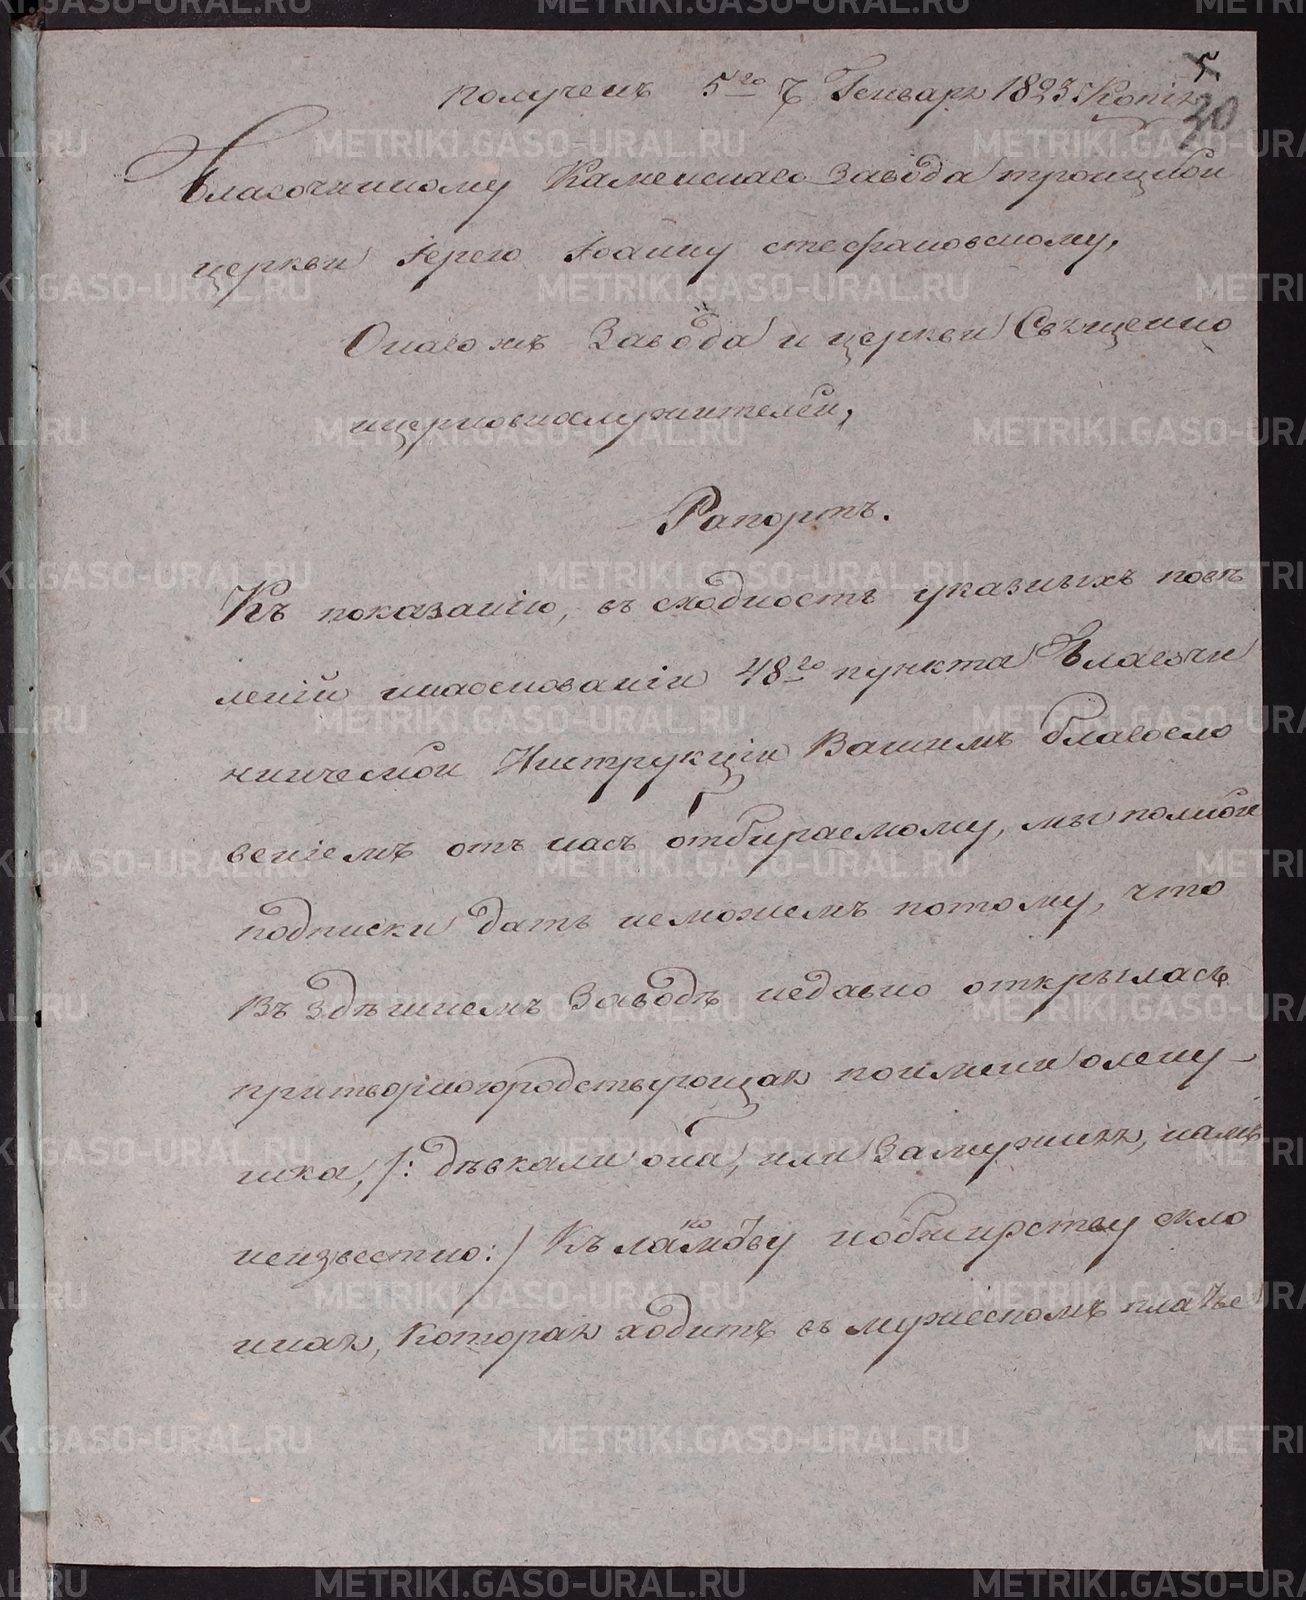 5.
получена 5го Генваря 1823. Копія
30
Благочинному Каменскаго Завода троицкой
церкви Іерею Іоанну стефановскому,
Онаго жъ Завода и церкви Священно
ицерковнослужителей,
Рапортъ.
Къ показанію, въ сходность указныхъ повѣ
леній инаоснованіи 48го пункта Благочи
ннической Инструкціи Вашимъ благосло
веніемъ отъ насъ отбираемому, мы полной
подписки дать неможемъ потому, что
Въ здѣшнемъ Заводѣ недавно открылась
притворноюродствующая поимени олену-
шка, /: дѣвкали она, или Замужняя, намъ
неизвестно:/ Къ лакомбву иобжирству скло
нная, Которая ходитъ въ мужескомъ платье
METRIKI.GASO-URAL.RU